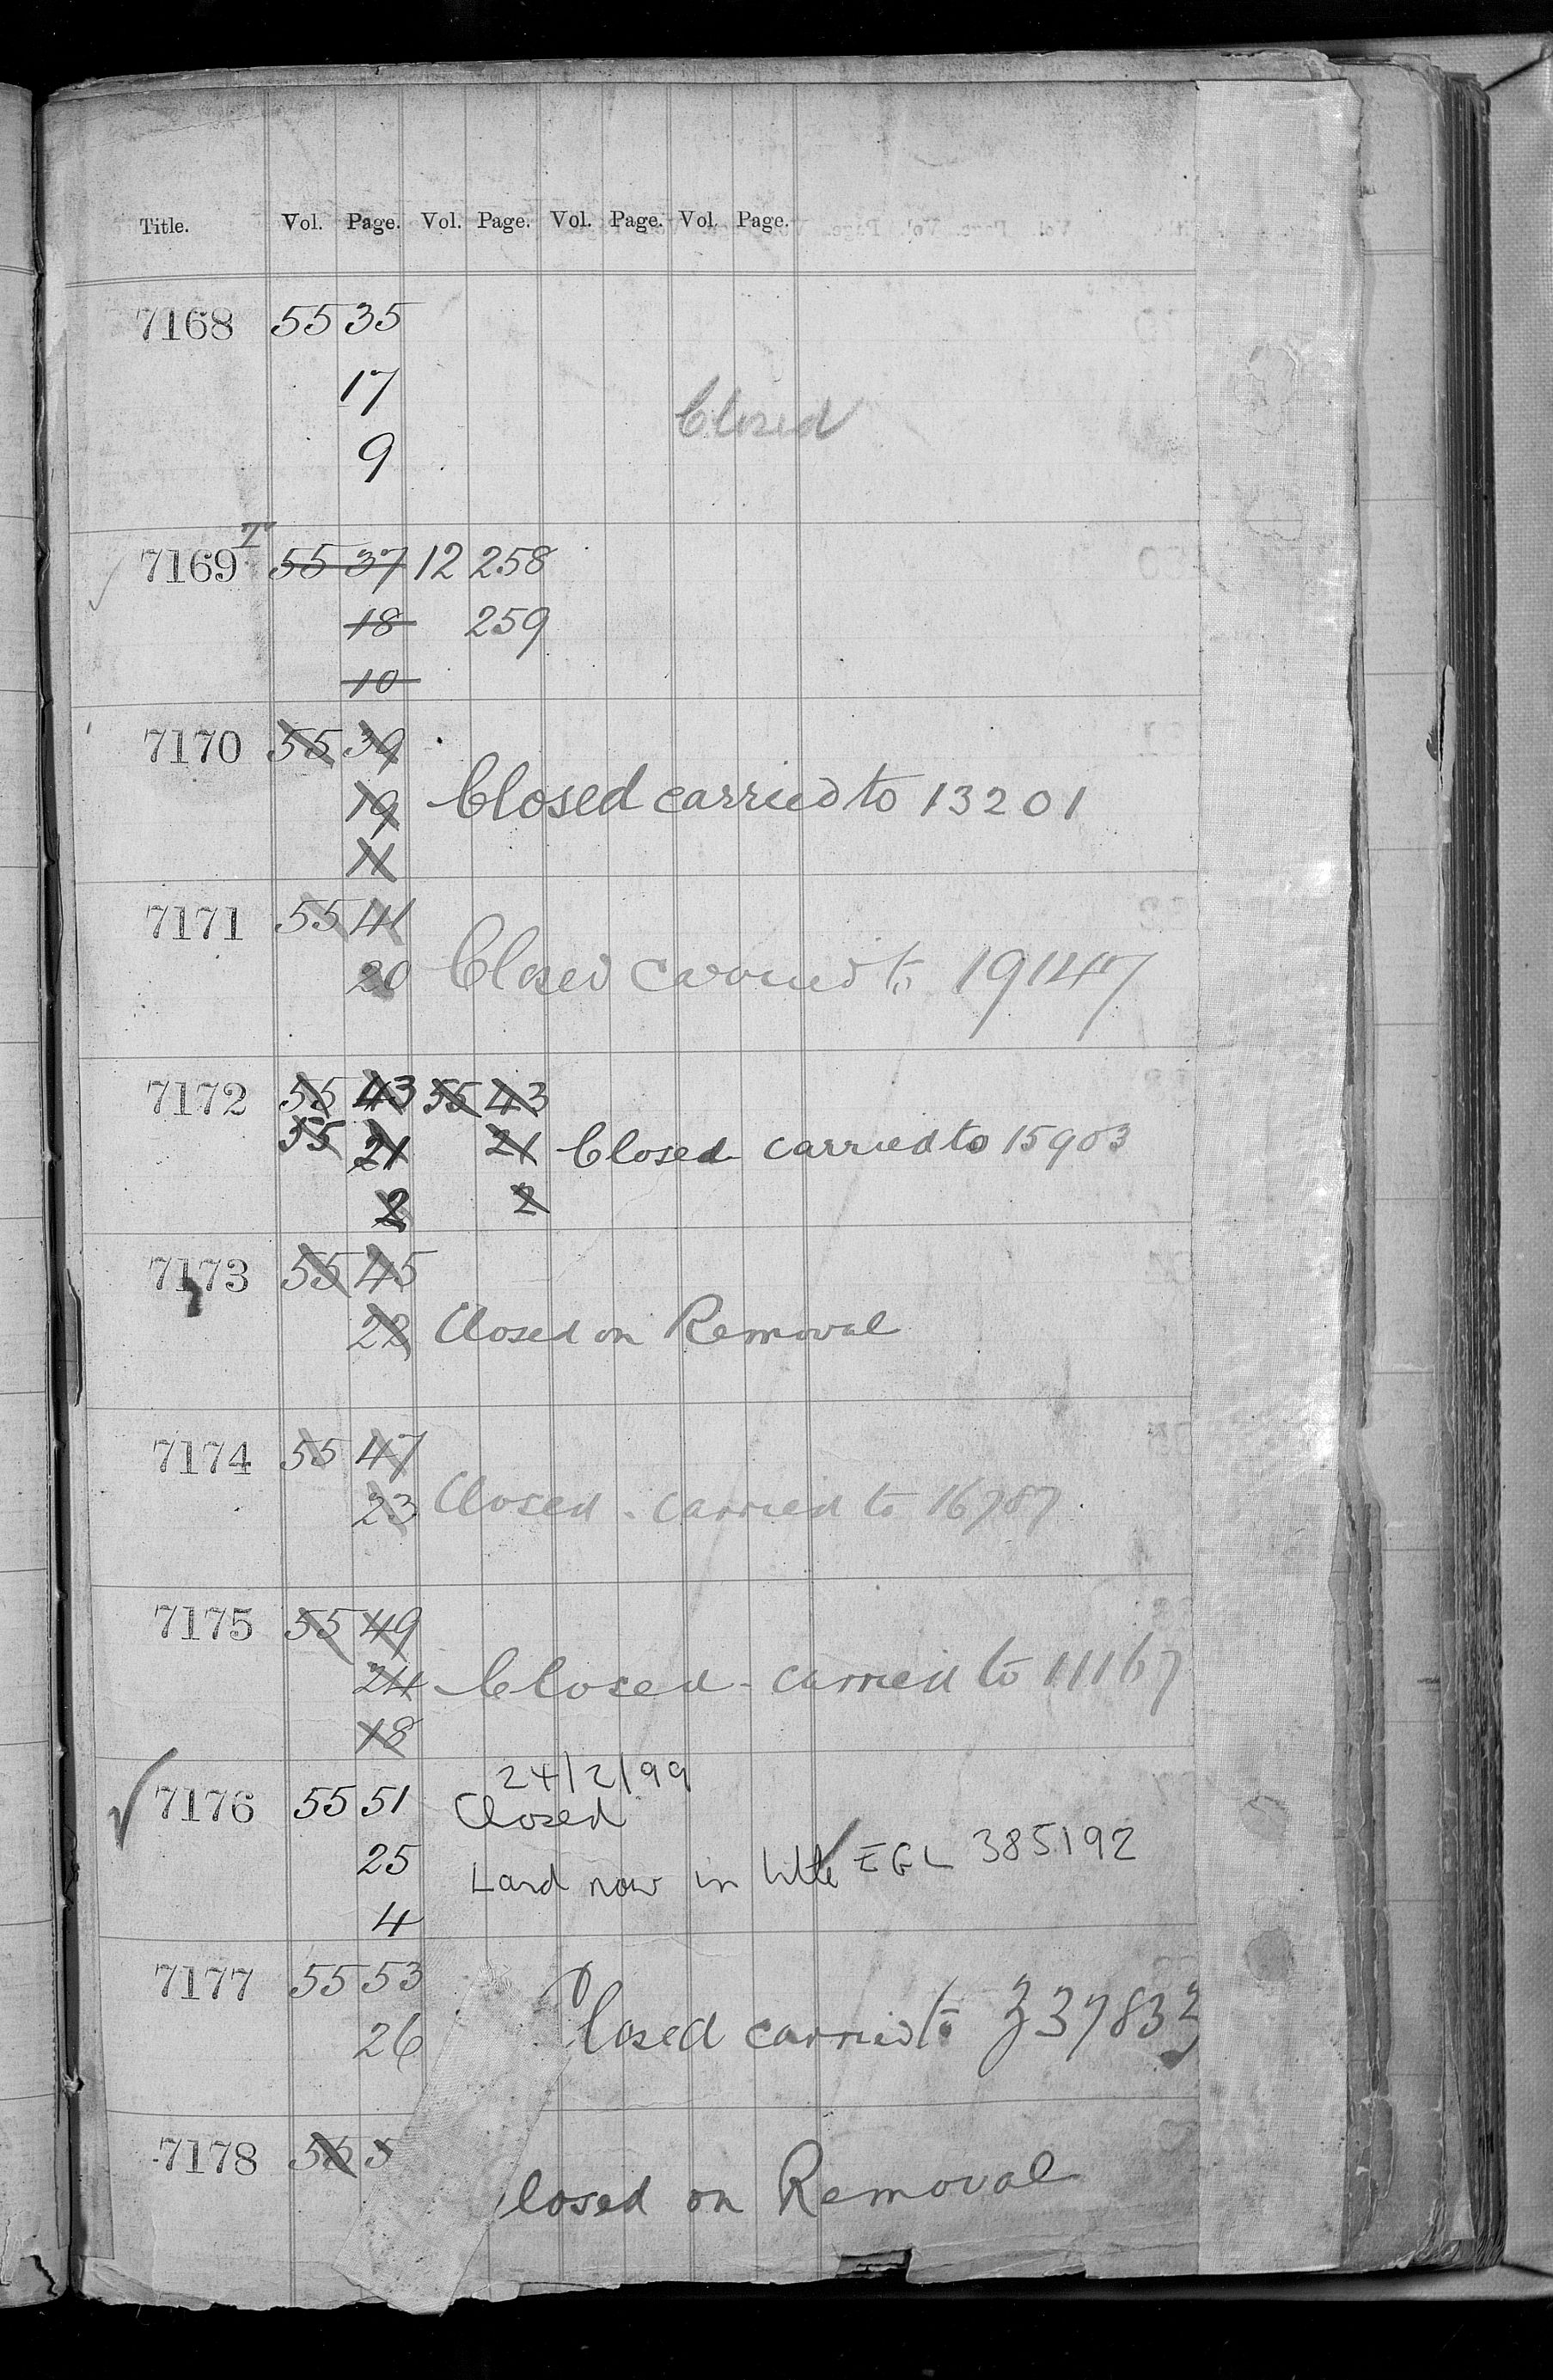 Title. Vol. Page. Vol. Page. Vol. Page. Vol. Page.
7168 55 35
17
Closed
9
T
7169 55 37 12 258
18 259
10
7170 55 39
19 Closed carried to 13201
11
7171 55 41
20 Closed carried to 19147
7172 55 43 55 43
55 21 21 Closed carried to 15903
2 2
7173 55 45
22 Closed on Removal
7174 55 47
23 Closed - carried to 16787
7175 55 49
24 Closed - carried to 11167
18
24/2/99
7176 55 51 Closed
25 Land now in title EGL 385192
4
7177 55 53
26 Closed carried to 337833
7178 55 5
losed on Removal